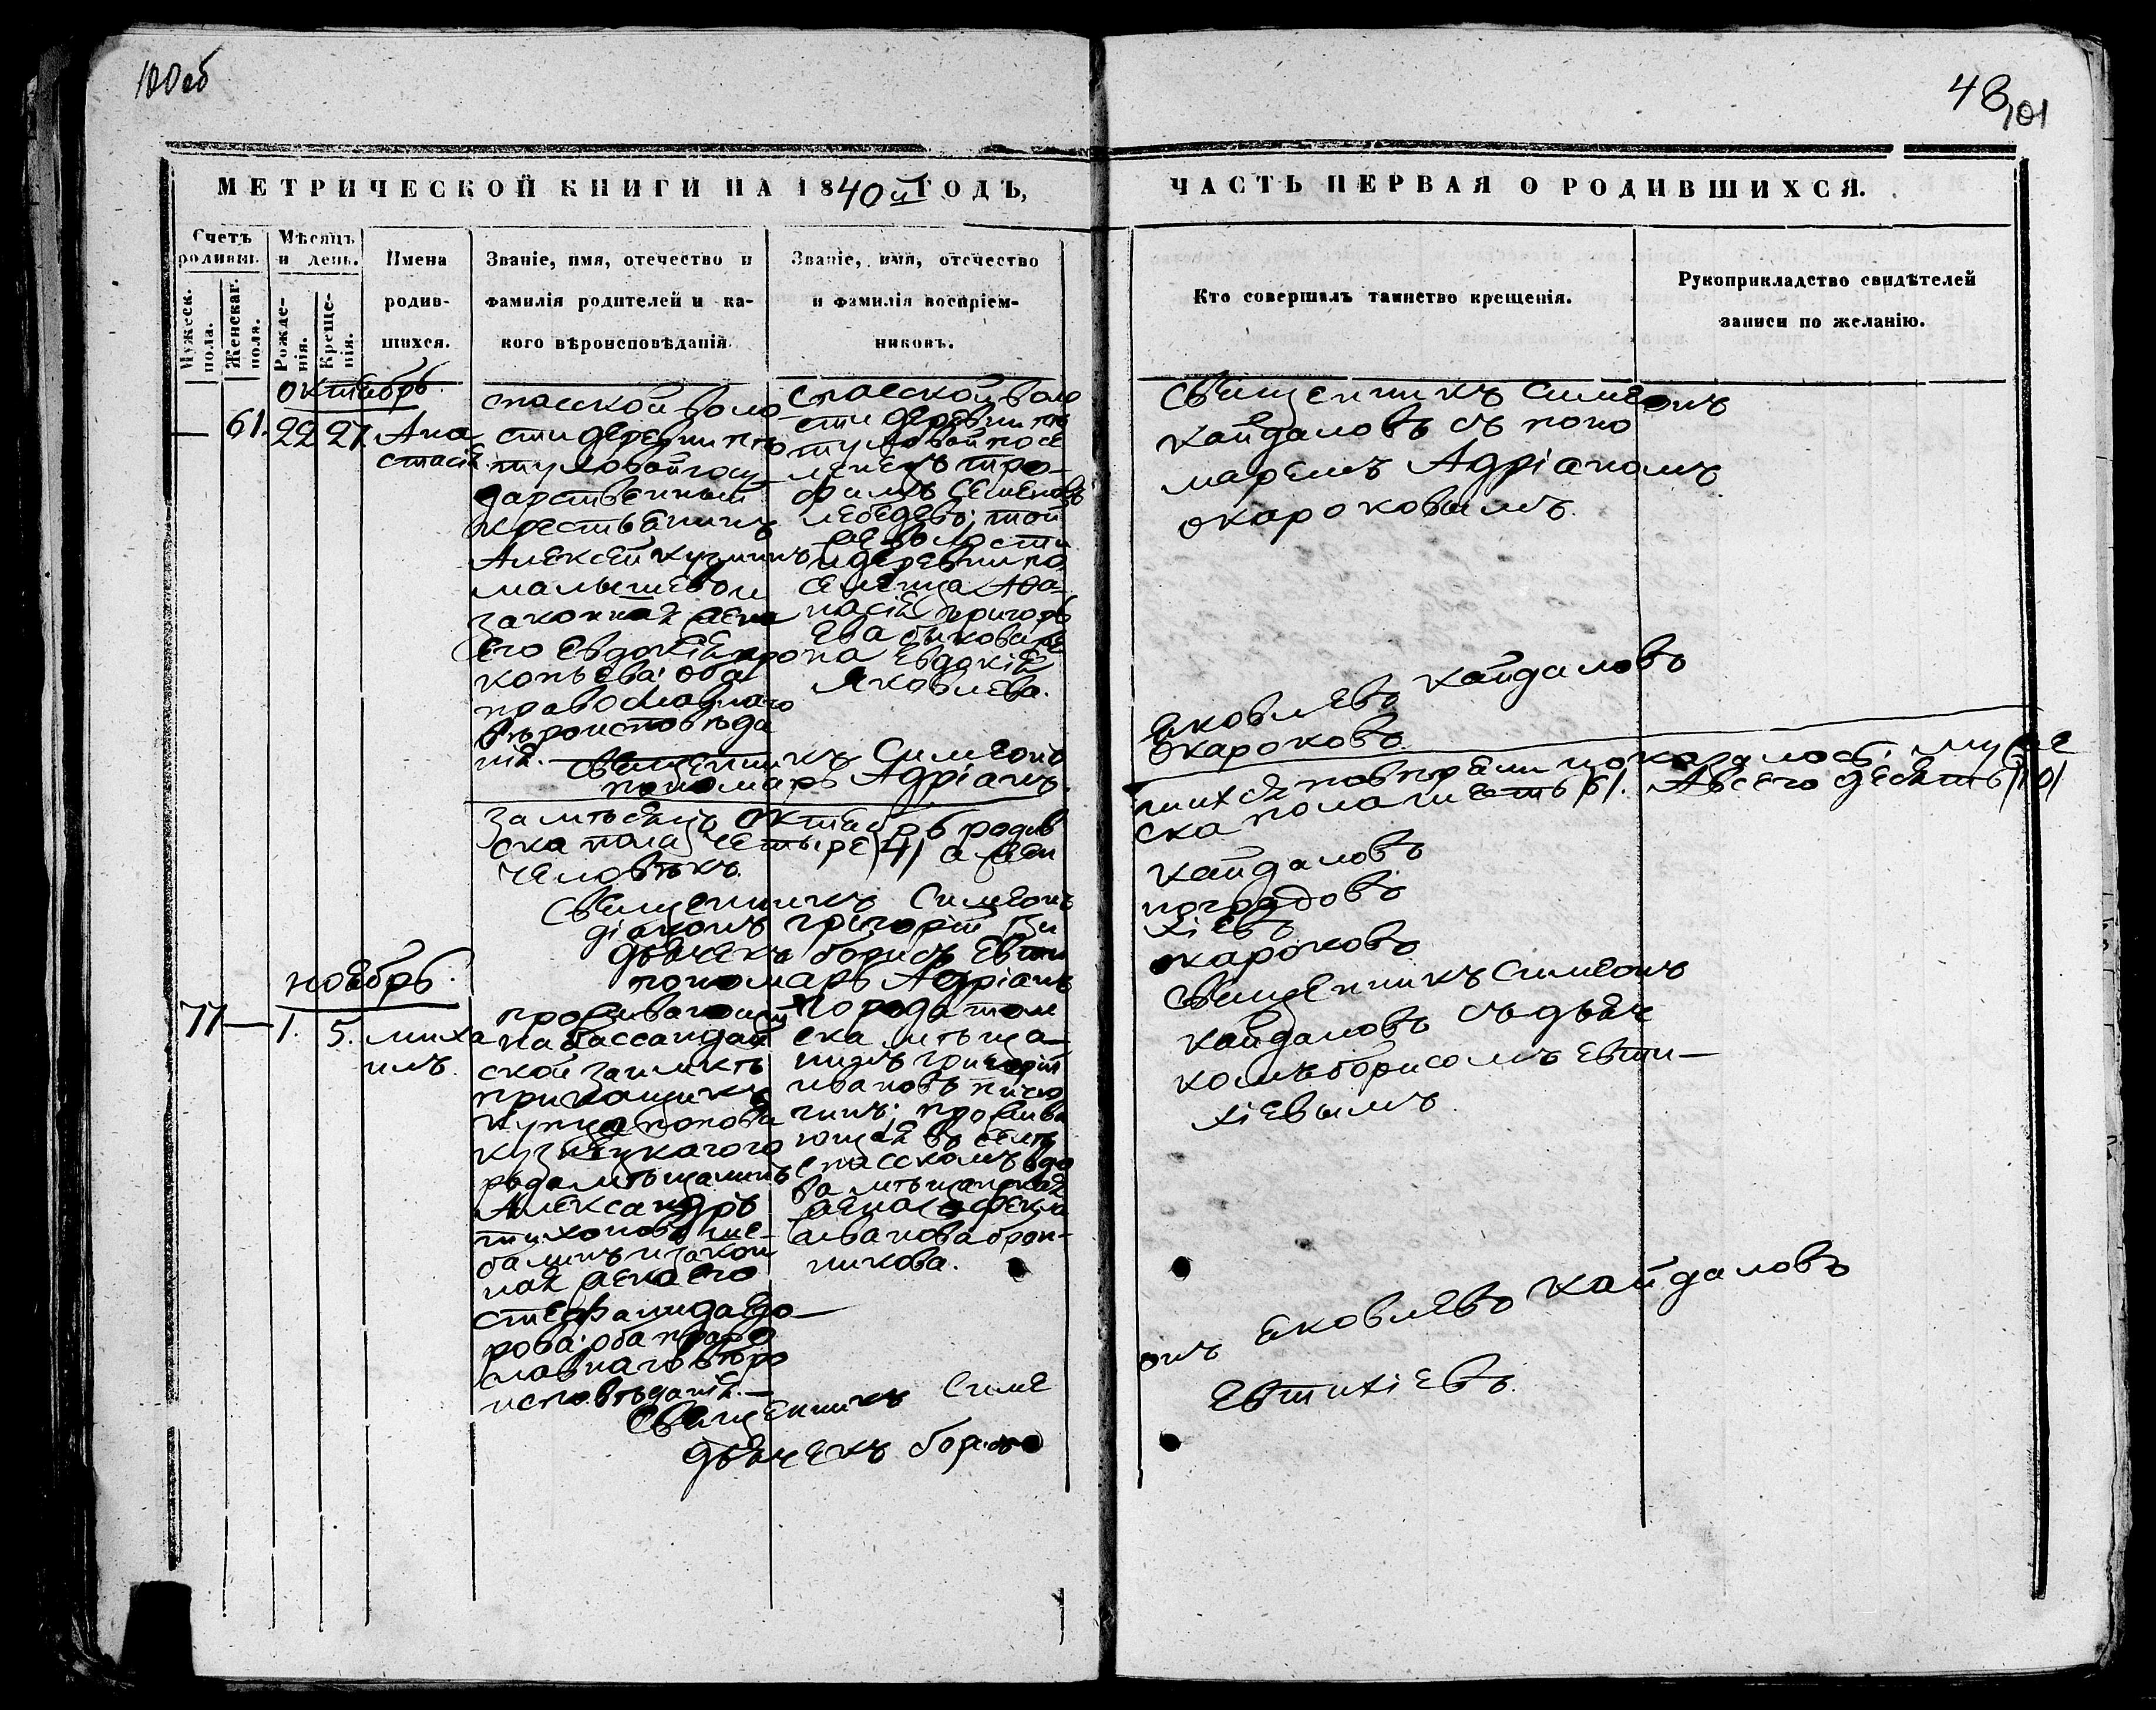 100 об
48
101
МЕТРИЧЕСКОЙ КНИГИ НА 1840й ГОДЪ,
ЧАСТЬ ПЕРВАЯ О РОДИВШИХСЯ.
Счетъ родивш.
Мужеск. пола.
Женскаг. пола.
Мѣсяцъ и день.
Рожде-
нія.
Креще-
нія.
Имена
родив-
шихся.
Званіе, имя, отечество и
фамилія родителей и ка-
кого вѣроисповѣданія.
Званіе, имя, отечество
и фамилія воспріем-
никовъ.
Кто совершалъ таинство крещенія.
Рукоприкладство свидѣтелей
записи по желанію.
октябрь
61. 22 27. Ана
стасія
спасской воло
сти деревни пѣ
туховой госу
дарственный
крестьянинъ
Алексей кузминъ
малышевъ и
законная жена
его Евдокія про
копьева: оба
православнаго
вѣроисповѣда
нія.
спасской воло
сти деревни пѣ
туховой посе
ленецъ тро-
фимъ семеновъ
лебедевъ; той
же волости
и деревни по
селенца Афа-
насія григорь
ева быкова же
на Евдокія
Яковлева.
Священникъ симеонъ
кайдаловъ съ поно
маремъ Адріаномъ
окороковымъ.
Священникъ Симеонъ Яковлевъ кайдаловъ
пономарь Адріанъ окороковъ
За мѣсяцъ октябрь родив шихся повѣрени показалось: муже
ска пола четыре /4/ а жен ска пола шесть /6/. А всего десять /10/
человѣкъ.
Священникъ Симеонъ кайдаловъ
діаконъ григорій
дьячекъ борисъ Евти хіевъ
пономарь Адріанъ окороковъ
ноябрь.
77 — 1. 5. миха
илъ.
проживающій
на бассандай
ской заимкѣ
прикащикъ
купца попова
кузнецкаго го
рода мѣщанинъ
Александръ
тихоновъ ше-
балинъ и закон
ная жена его
стефанида его-
рова; оба право
славнаго вѣро
исповѣданія.—
города том
ска мѣща-
нинъ григорій
ивановъ пичу
гинъ; прожива
ющая въ селѣ
спасскомъ вдо
ва мѣщанская
жена
иванова брон-
никова.
Священникъ Симеонъ
кайдаловъ съ дьяч
комъ борисомъ евти-
хіевымъ
Священникъ Симе онъ яковлевъ кайдаловъ
дьячекъ борисъ Евтихіевъ.